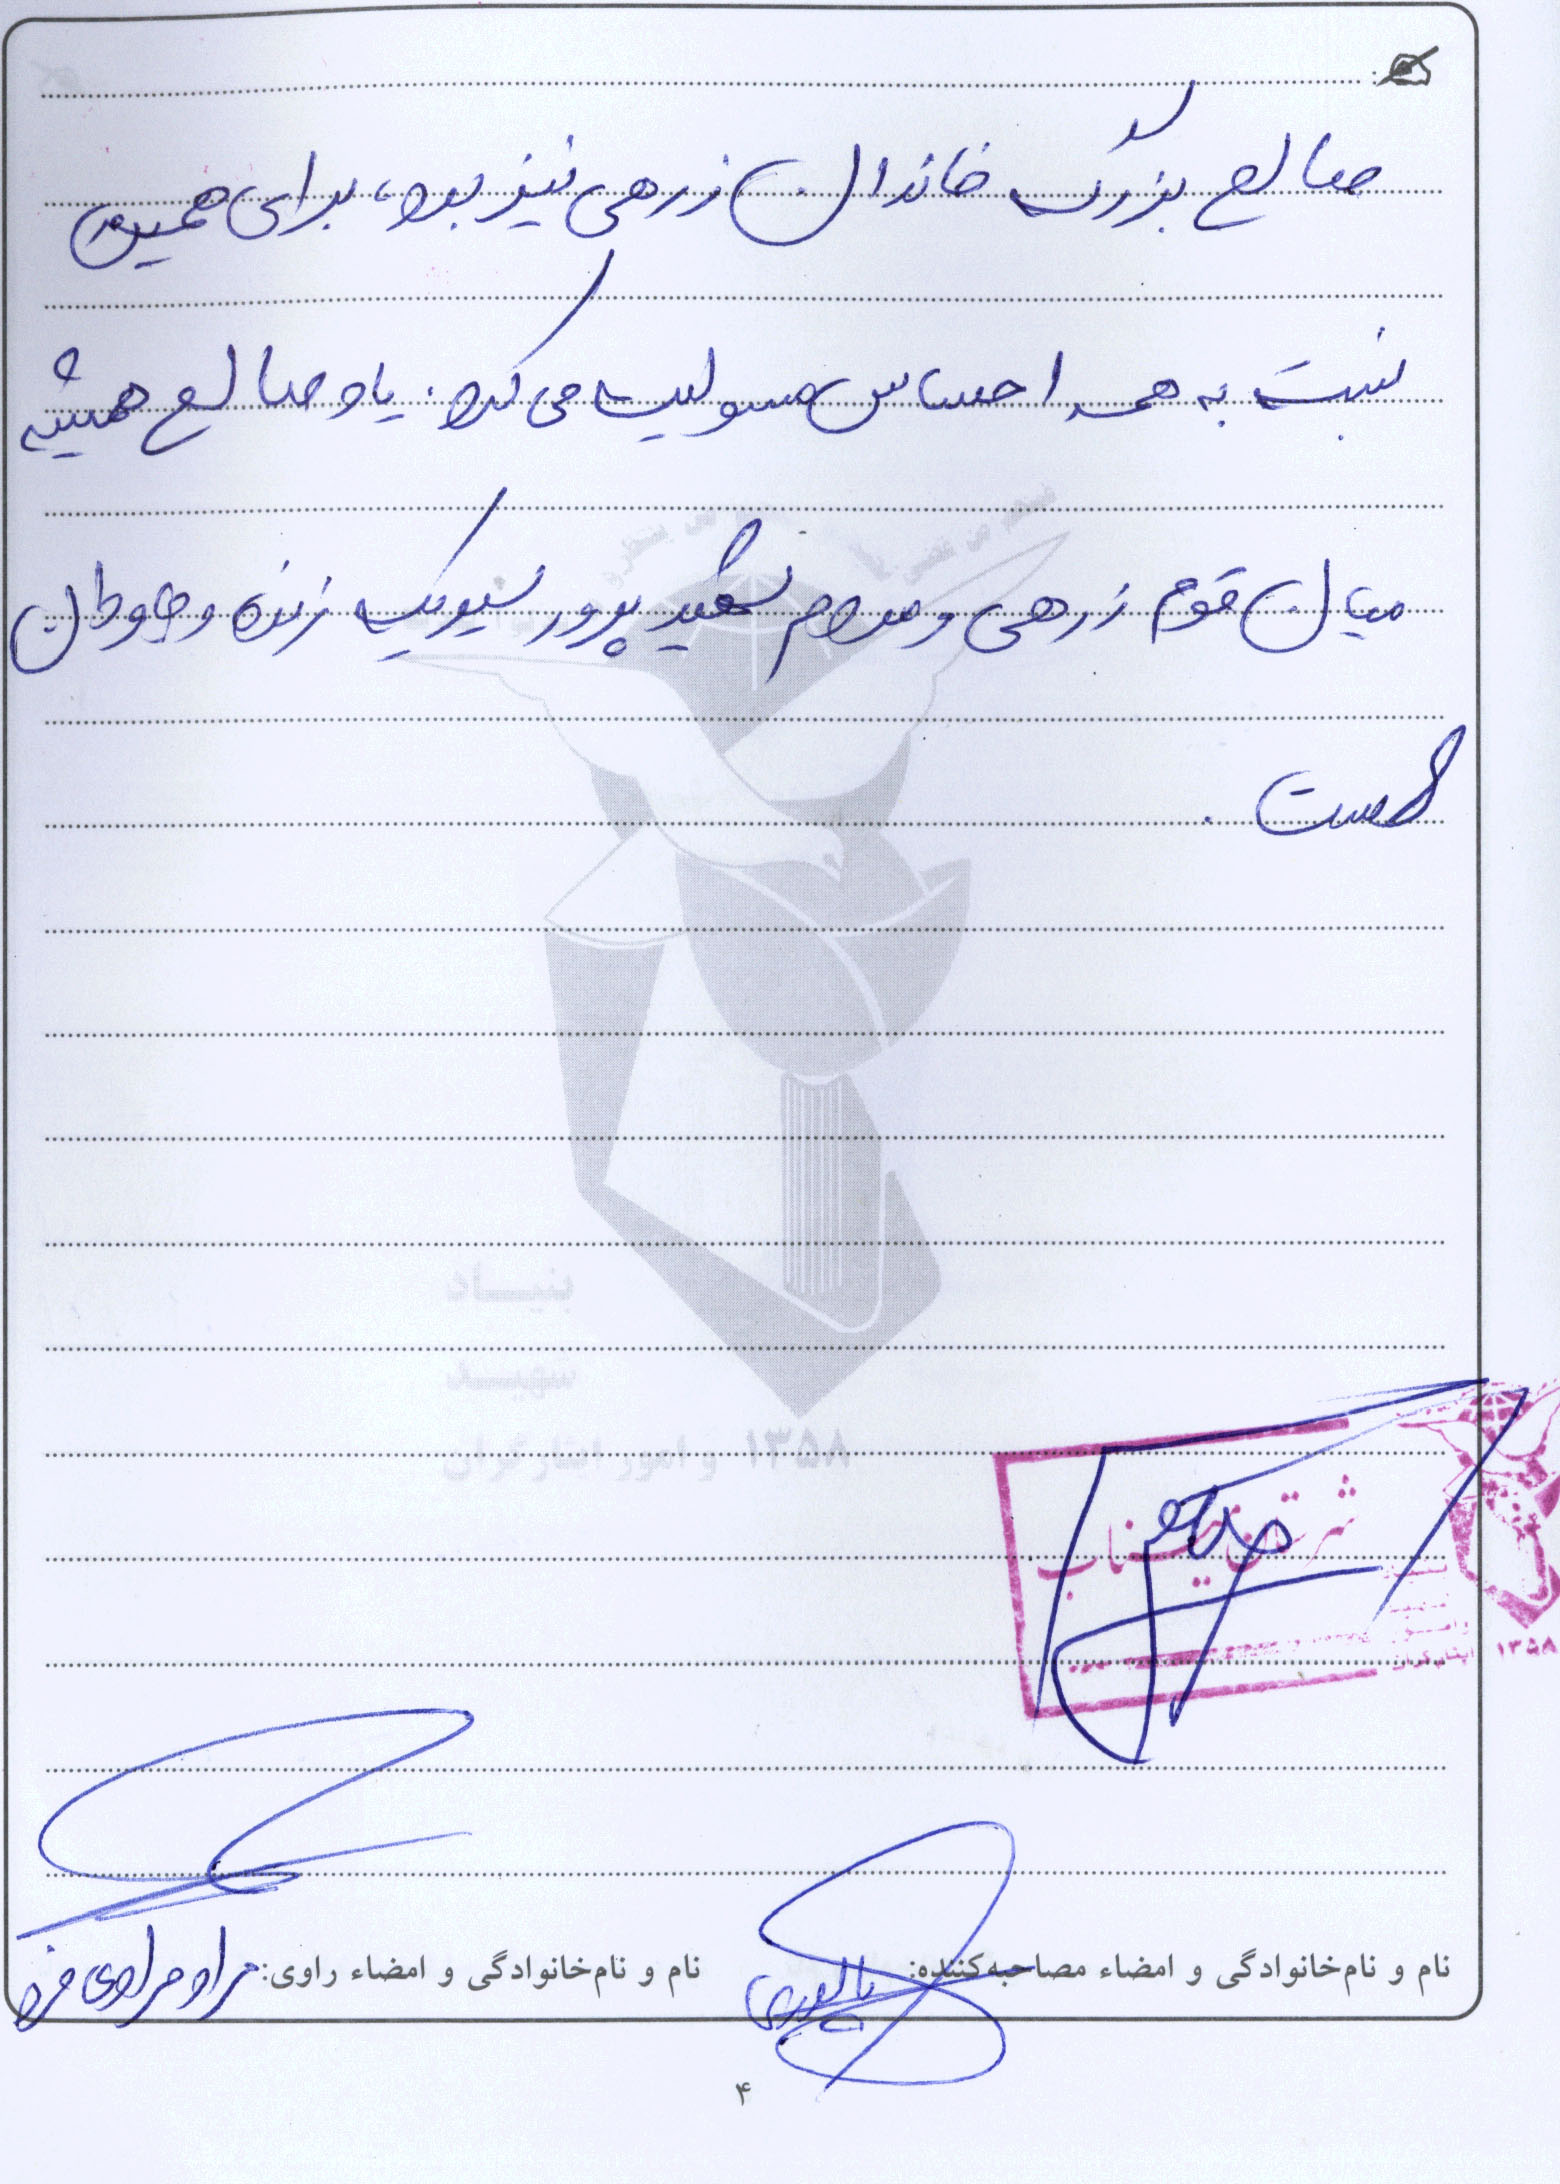 صالح بزرگ خاندان زرهی نیز بود، برای همین
نسبت به همه احساس مسولیت می کرد. یاد صالح همیشه
میان قوم زرهی و مردم شهید پرور سیریک زنده و جاودان
هست.
بنیاد
شهید
و امور ایثارگران ۱۳۵۸
۱۳۵۸
نام و نام‌خانوادگی و امضاء مصاحبه‌کننده:
نام و نام‌خانوادگی و امضاء راوی: مراد مرادی فرد
۴